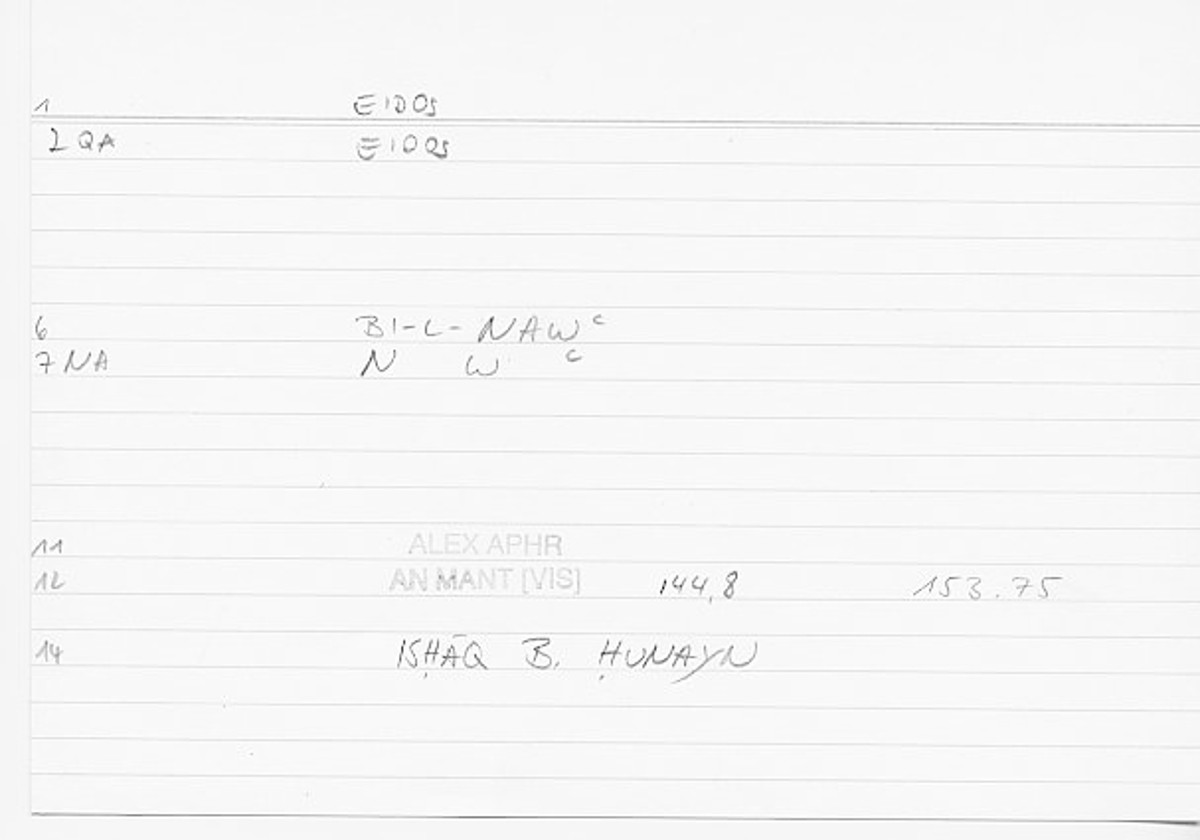 1 EIDOS
2 QA EIDOS
6 BI-L-NAWʿ
7 NA N W ʿ
11 ALEX APHR
12 AN MANT [VIS] 144,8 153.75
14 ISḤĀQ B. ḤUNAYN